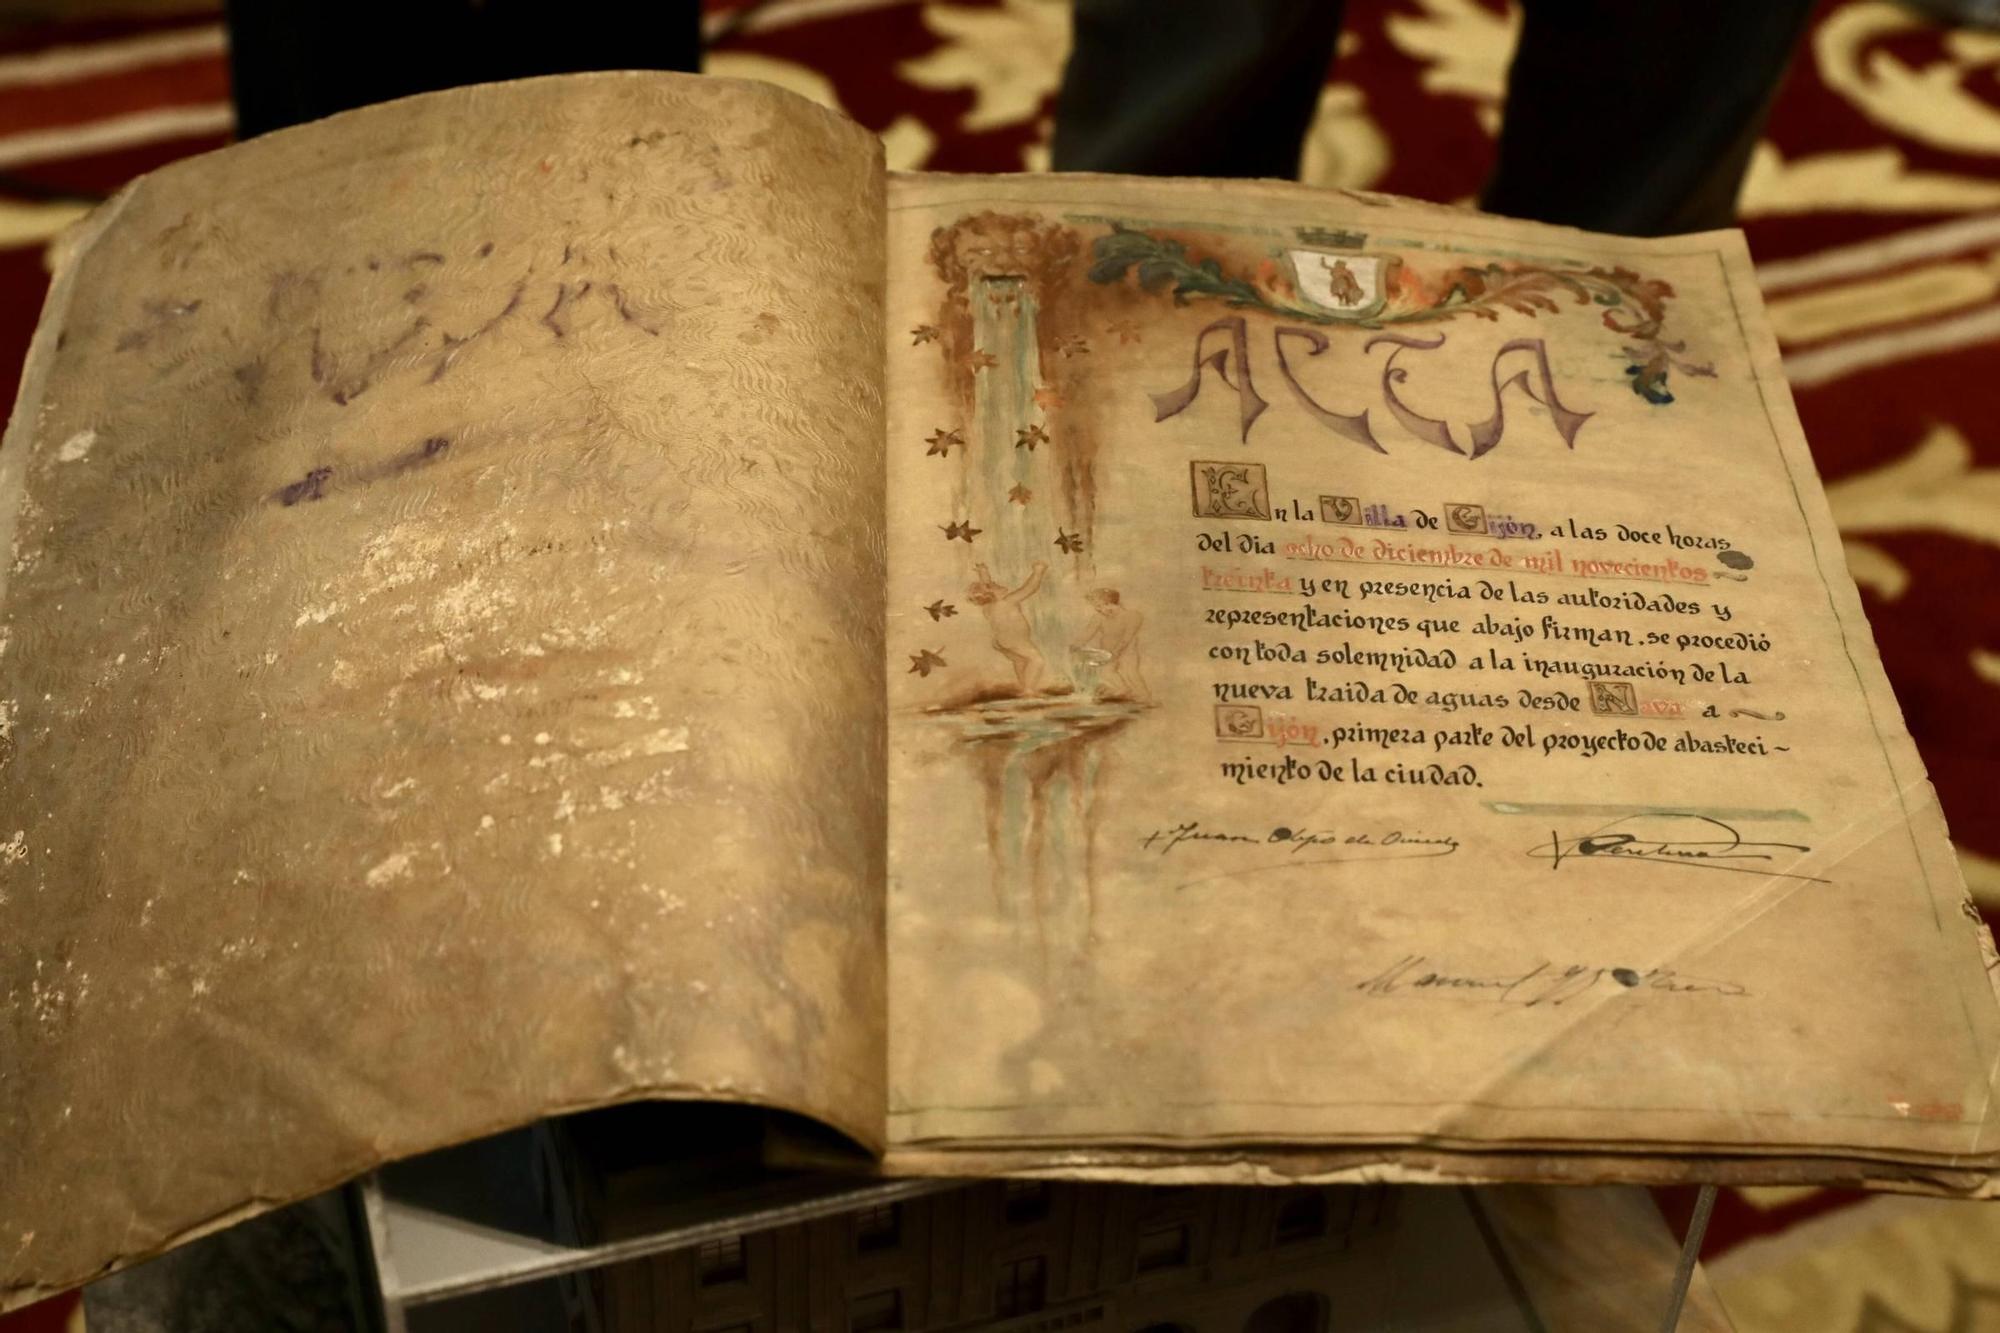 ACTA
En la Villa de Gijón, a las doce horas
del dia ocho de diciembre de mil novecientos
treinta y en presencia de las autoridades y
representaciones que abajo firman, se procedió
con toda solemnidad a la inauguración de la
nueva traida de aguas desde Nava a
Gijón, primera parte del proyecto de abasteci-
miento de la ciudad.
+ Juan Obpo de Oviedo
Manuel